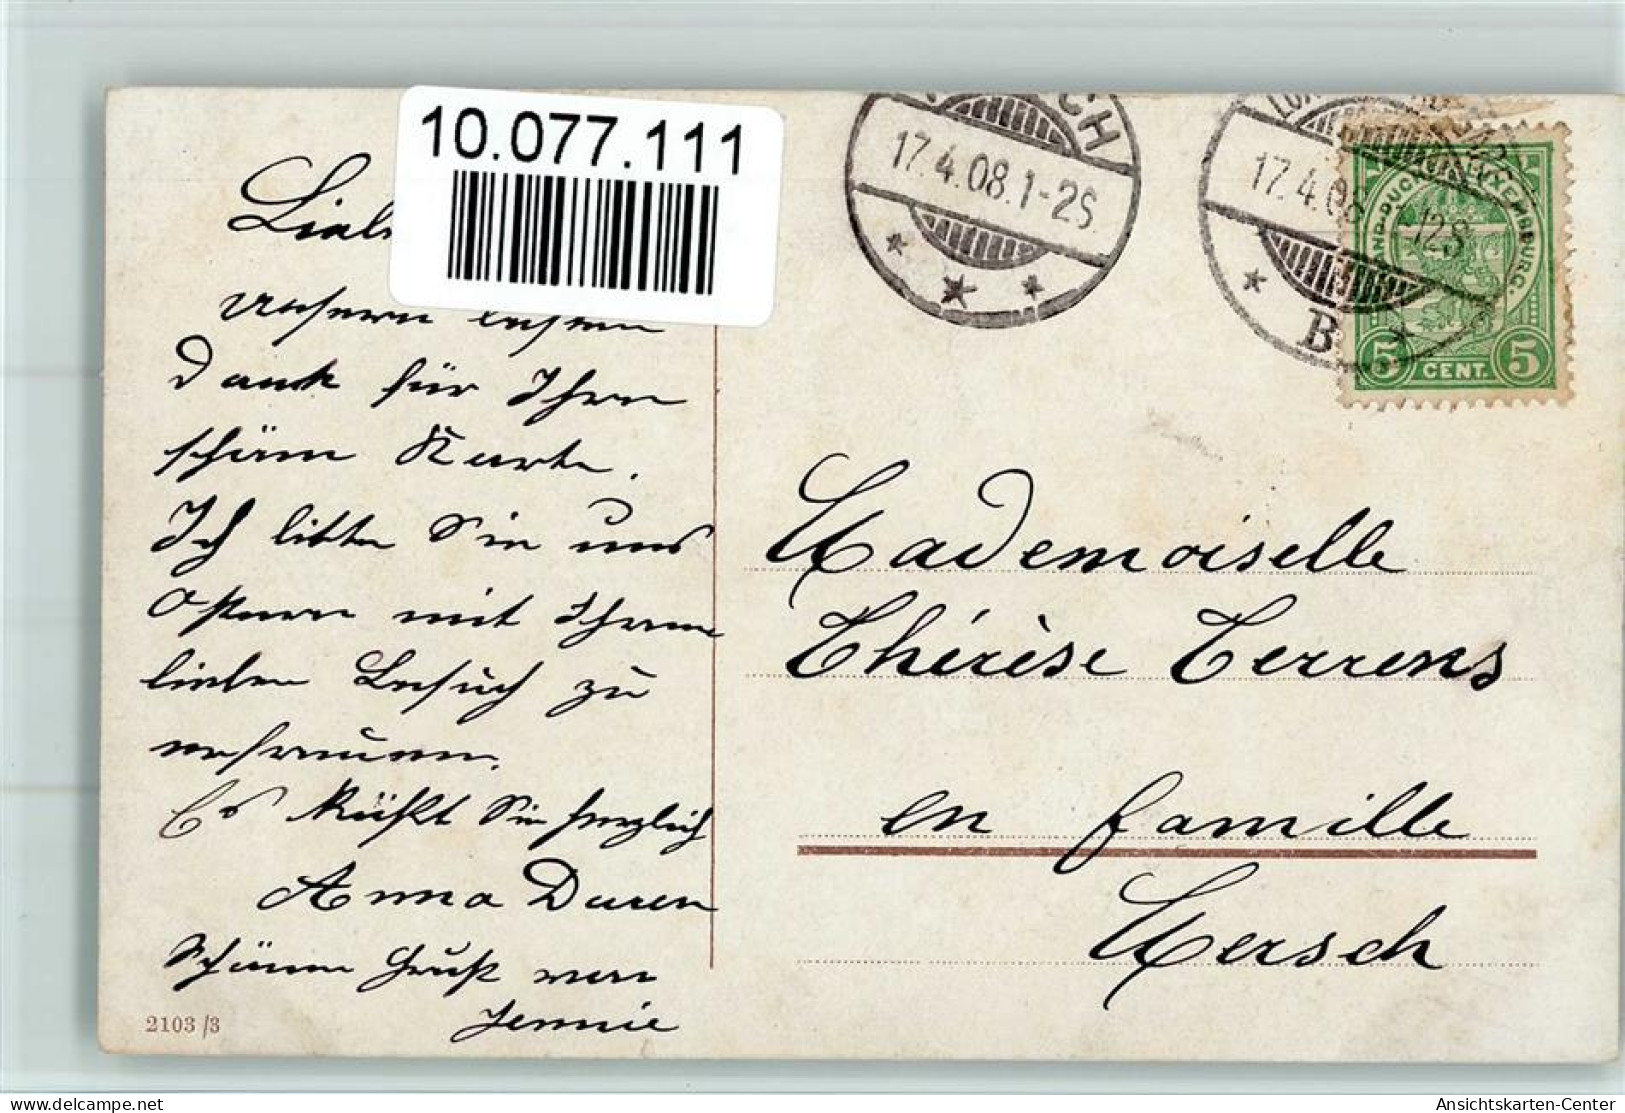 10.077.111
17.4.08.1-2S.
17.4.08
12S
B
LUXEMBURG.
5 CENT. 5
Unsern besten
Dank für Ihre
schöne Karte.
Ich bitte Sie uns
Ostern mit Ihrem
lieben Besuch zu
erfreuen.
Es küßt Sie herzlich
Anna Duren
Schönen Gruß von
Jennie
2103/3
Mademoiselle
Thérèse Terrens
en famille
Mersch
delcampe.net
Ansichtskarten-Center